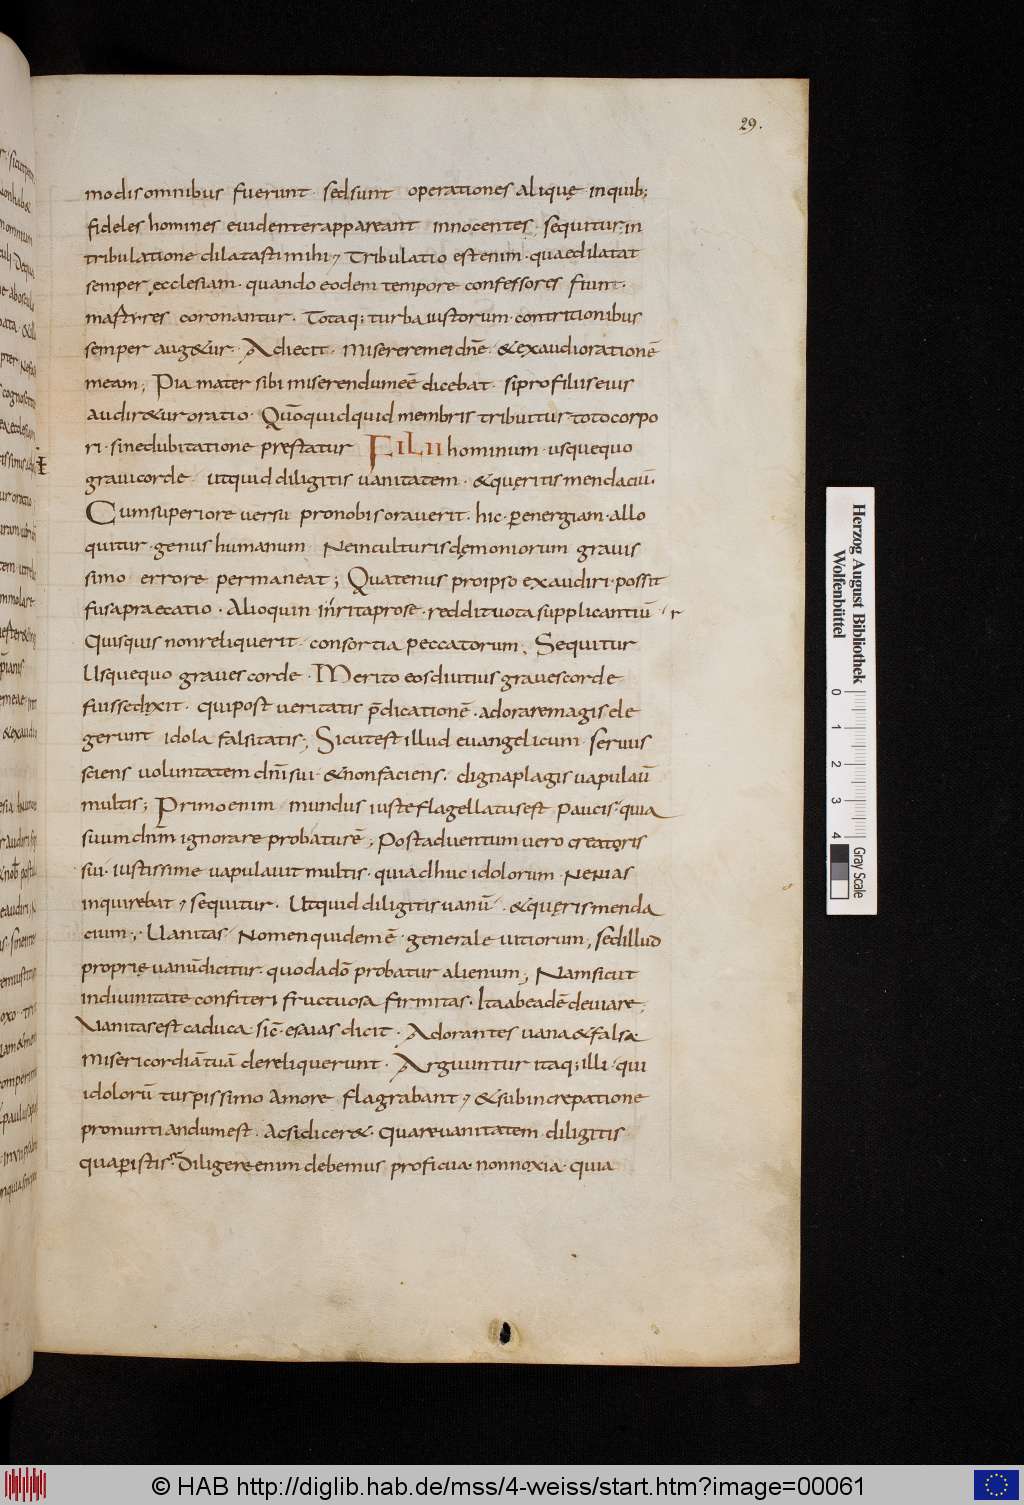 29.
modis omnibus fuerunt · sed sunt operationes alique · inquib;
fideles homines euidenter appareant innocentes, sequitur · in
tribulatione dilatasti mihi, Tribulatio est enim · quae dilatat
semper ecclesiam · quando eodem tempore confessores fiunt ·
martyres coronantur · Totaq; turba iustorum · contritionibus
semper aug&ur · Adiecit · Miserere mei dnē · &exaudi orationē
meam; Pia mater sibi miserendumeē dicebat · si pro filiis eius
audir&ur oratio · Quō quidquid membris tribuitur · toto corpo
ri · sine dubitatione prestatur FILII hominum · usquequo
graui corde · utquid diligitis uanitatem · &quęritis mendaciū ·
Cum superiore uersu pro nobis orauerit · hic · p energiam · allo
quitur · genus humanum Ne in culturis dęmoniorum grauis
simo errore permaneat; Quatenus pro ipso exaudiri · possit
fusa praecatio · Alioquin
Quisquis non reliquerit · consortia peccatorum; Sequitur
Usquequo graues corde · Merito eos diutius graues corde
fuisse dixit · qui post ueritatis p̄dicationē · adorare magis ele
gerunt idola falsitatis; Sicut est illud euangelicum · seruus
sciens uoluntatem dnī sui · &non faciens · digna plagis uapulau̅
multis; Primo enim mundus iuste flagellatus est paucis · quia
suum dnm̄ ignorare probatur eē; Post aduentum uero creatoris
sui · iustissime uapulauit multis · quia adhuc idolorum · Nenias
inquirebat, sequitur · Utquid diligitis uanū · &quęris menda
cium; Uanitas · Nomen quidem ē · generale uitiorum; sed illud
proprię uanū dicitur · quod a dō probatur alienum; Nam sicut
in diuinitate confiteri fructuosa firmitas · Ita ab ea dē deuiare,
Uanitas est caduca · sic̄ · esaias dicit · Adorantes uana &falsa ·
misericordiā tuā dereliquerunt · Arguuntur itaq; illi · qui
idolorū turpissimo amore flagrabant, &sub increpatione
pronuntiandum est · ac si dicer& · quare uanitatem diligitis
Diligere enim debemus proficua · non noxia · quia
Herzog August Bibliothek
Wolfenbüttel
0 1 2 3 4
Gray Scale
© HAB http://diglib.hab.de/mss/4-weiss/start.htm?image=00061